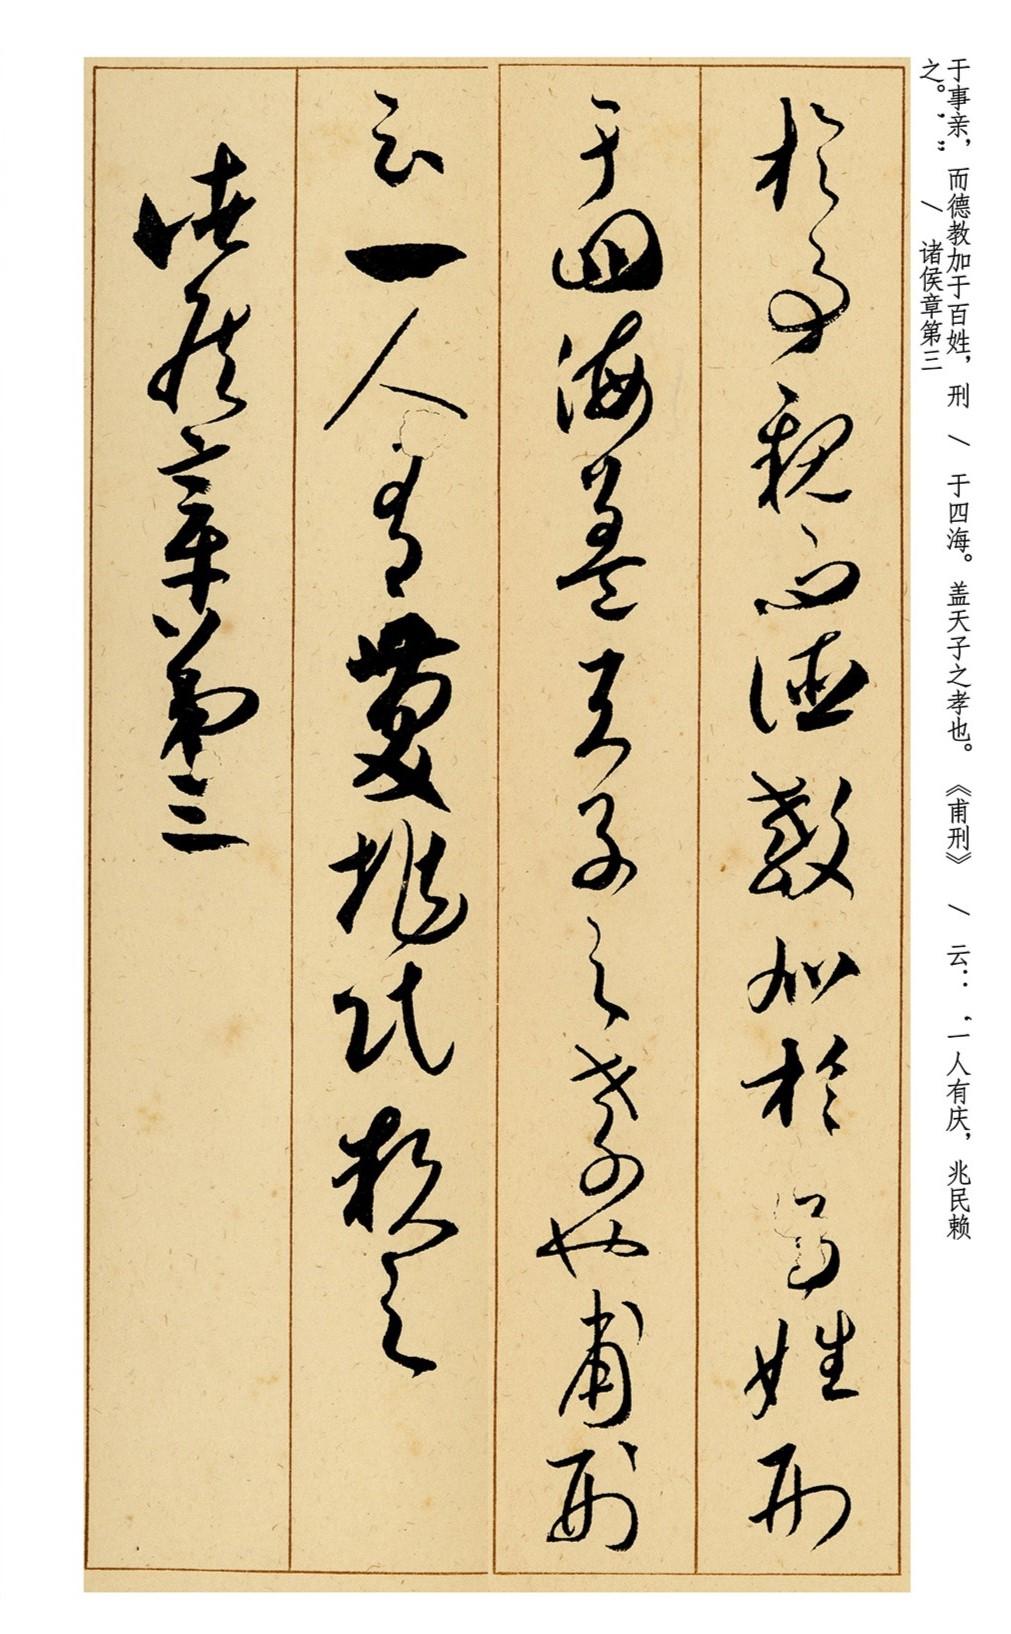 于事亲，而德教加于百姓，刑 \ 于四海。盖天子之孝也。《甫刑》 \ 云：“一人有庆，兆民赖
之。’” \ 诸侯章第三
於事親而德教加於百姓刑
于四海蓋天子之孝也甫刑
云一人有慶兆民賴之
諸侯章第三